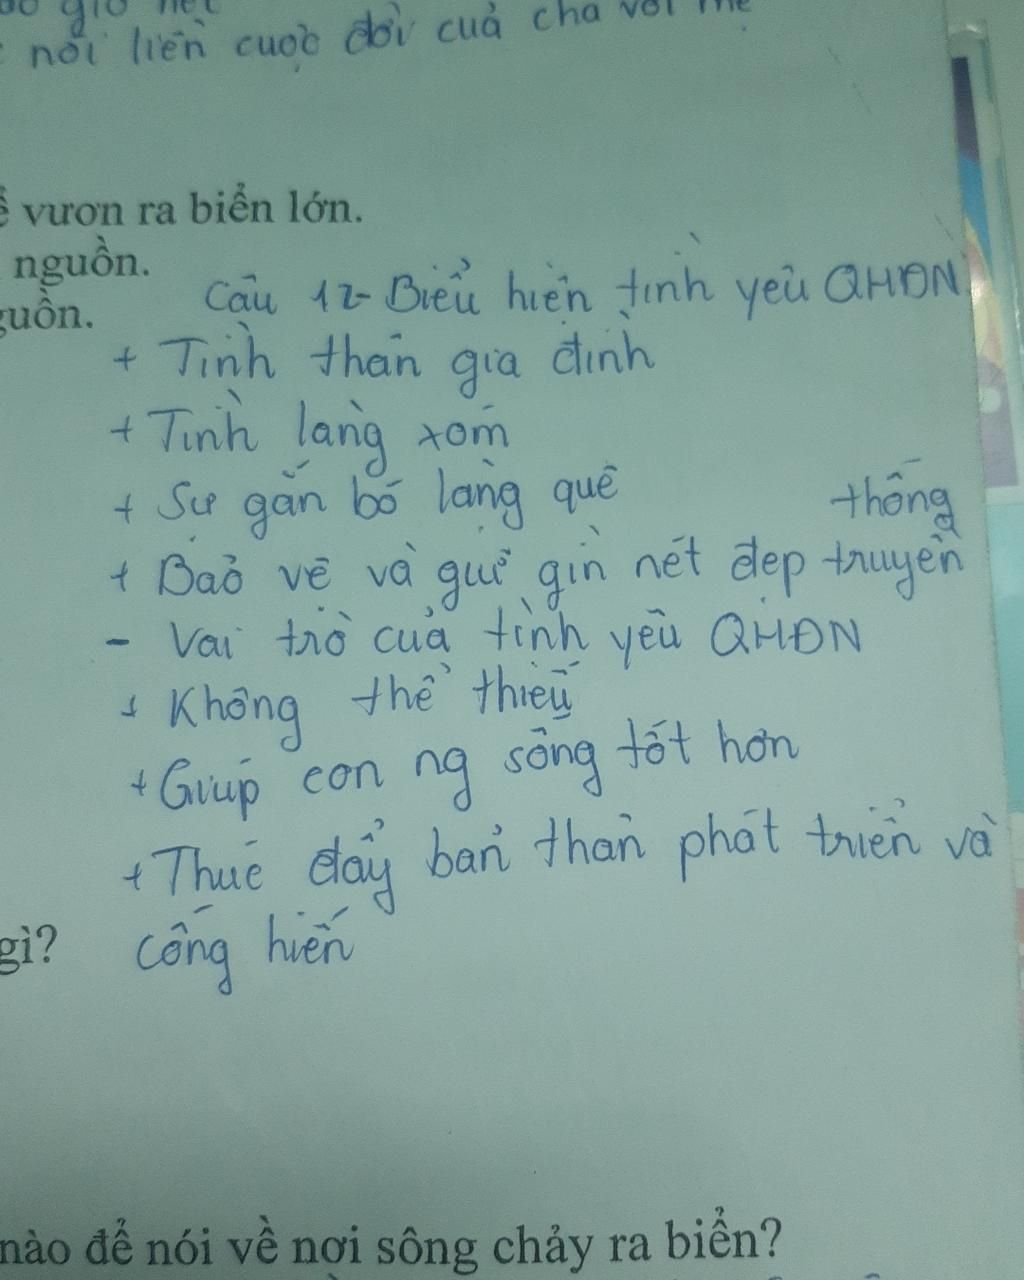 nối liền cuộc đời của cha với mẹ
vươn ra biển lớn.
nguồn.
Câu 12- Biểu hiện tình yêu QHĐN
guồn.
+ Tình thân gia đình
+ Tình làng xóm
+ Sự gắn bó làng quê
thống
+ Bảo vệ và giữ gìn nét đẹp truyền
- Vai trò của tình yêu QHĐN
+ Không thể thiếu
+ Giúp con ng sống tốt hơn
+ Thúc đẩy bản thân phát triển và
gì? cống hiến
nào để nói về nơi sông chảy ra biển?